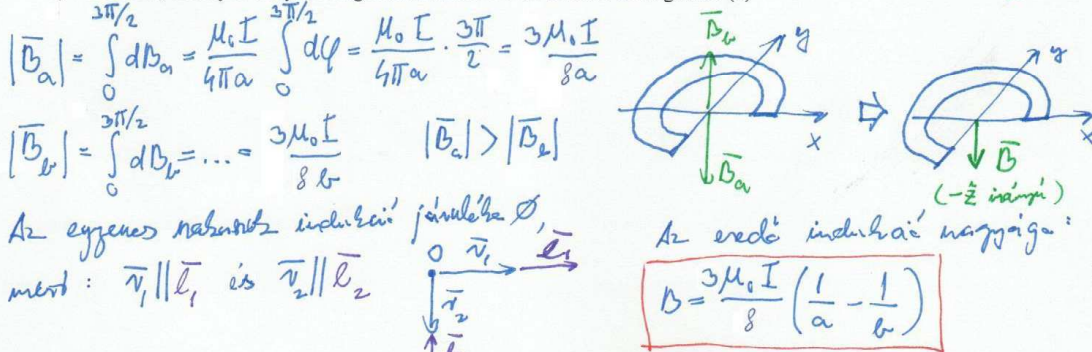 |B̄a| = ∫₀^{3π/2} dBa = μ₀I/4πa ∫₀^{3π/2} dφ = μ₀I/4πa · 3π/2 = 3μ₀I/8a
|B̄b| = ∫₀^{3π/2} dBb = ... = 3μ₀I/8b
|B̄a| > |B̄b|
Az egyenes szakaszok indukció járuléka Ø,
mert: r̄₁ || l̄₁ és r̄₂ || l̄₂
O r̄₁ l̄₁
r̄₂
B̄b
y
x
B̄a
⇨
y
x
B̄
(-ẑ irányú)
Az eredő indukció nagysága:
B = 3μ₀I/8 (1/a - 1/b)